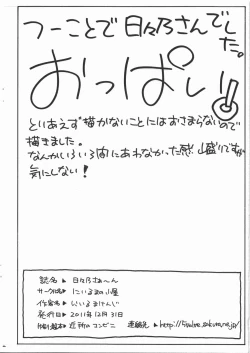 つーことで 日々乃さんでした。
おっぱい!
とりあえず描かないことにはおさまらないので
描きました。
なんかいろいろ間にあわなかった感山盛りですが
気にしない!
誌名▶日々乃さぁ〜ん
サークル名▶にいるまの小屋
作家名▶にいるまけんじ
発行日▶2011年12月31日
印刷/製本▶近所のコンビニ 連絡先▶http://